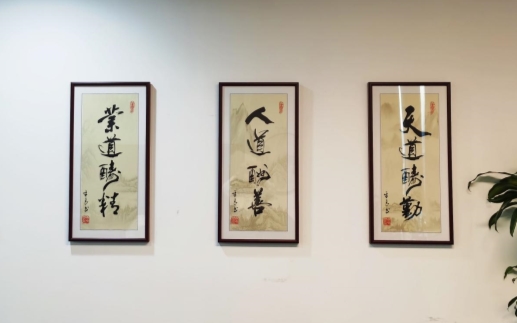 天道醻勤
人道酬善
業道醻精